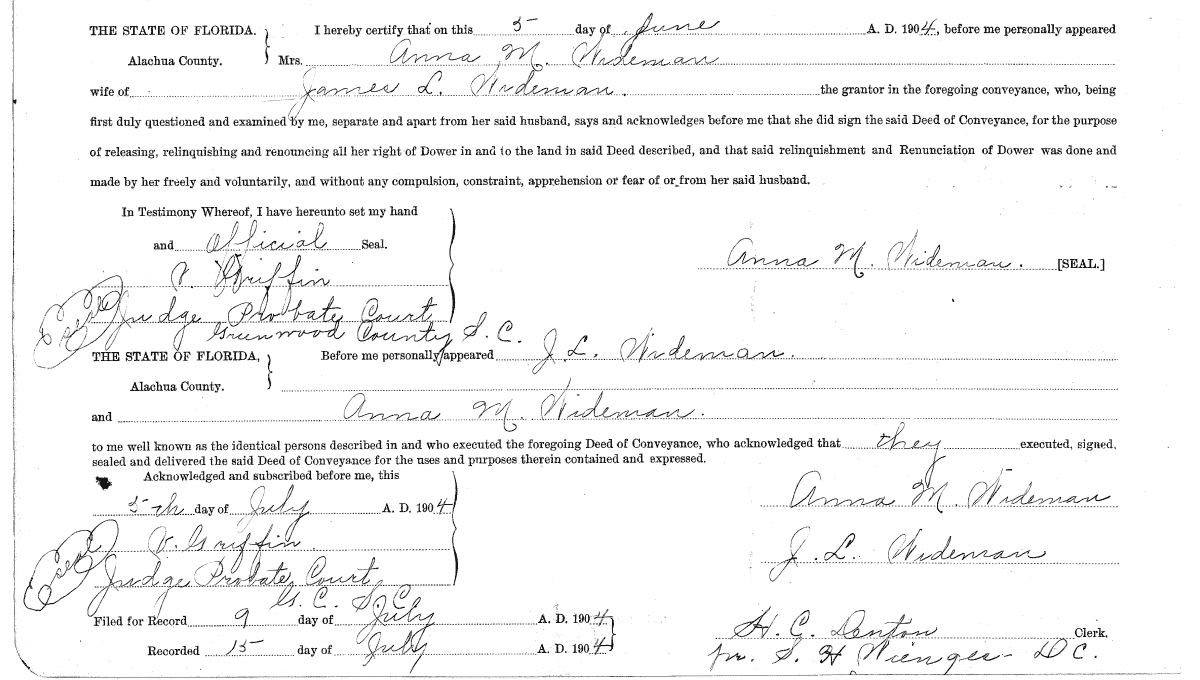 THE STATE OF FLORIDA. } I hereby certify that on this 5 day of June A. D. 1904, before me personally appeared
Alachua County. Mrs. Anna M. Wideman
wife of James L. Wideman. the grantor in the foregoing conveyance, who, being
first duly questioned and examined by me, separate and apart from her said husband, says and acknowledges before me that she did sign the said Deed of Conveyance, for the purpose
of releasing, relinquishing and renouncing all her right of Dower in and to the land in said Deed described, and that said relinquishment and Renunciation of Dower was done and
made by her freely and voluntarily, and without any compulsion, constraint, apprehension or fear of or from her said husband.
In Testimony Whereof, I have hereunto set my hand
and Official Seal. Anna M. Wideman. [SEAL.]
Griffin
Seal Judge Probate Court
Greenwood County, S. C.
THE STATE OF FLORIDA, } Before me personally appeared J. L. Wideman.
Alachua County.
and Anna M. Wideman.
to me well known as the identical persons described in and who executed the foregoing Deed of Conveyance, who acknowledged that they executed, signed,
sealed and delivered the said Deed of Conveyance for the uses and purposes therein contained and expressed.
Acknowledged and subscribed before me, this
5th day of July A. D. 1904 Anna M. Wideman
Griffin J. L. Wideman
Seal Judge Probate Court,
G. C. S. C
Filed for Record 9 day of July A. D. 1904
H. C. Denton Clerk.
Recorded 15 day of July A. D. 1904
pr. S. H Wienges - D C.